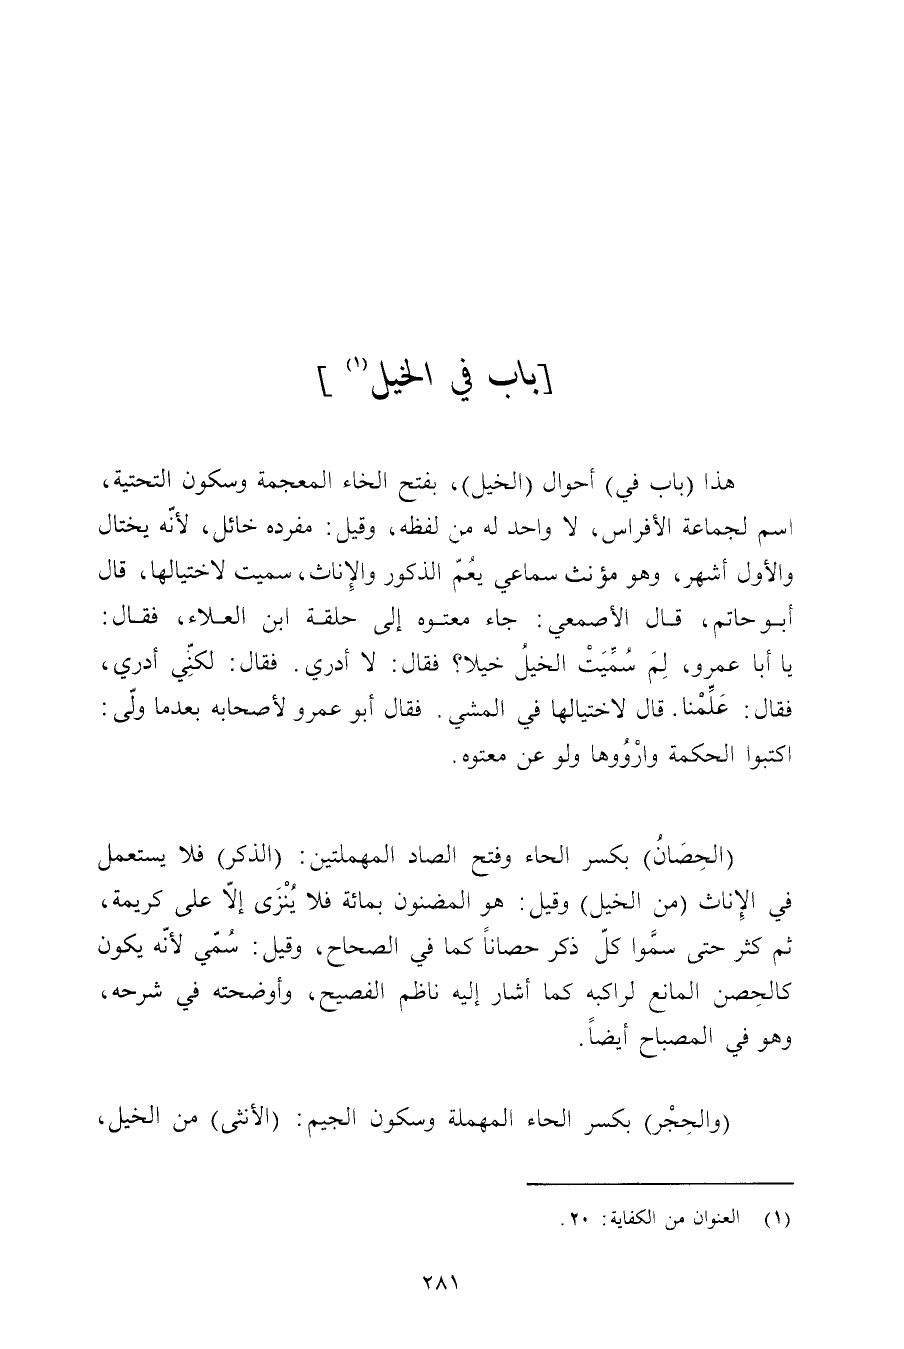 [باب في الخيل(١)]
هذا (باب في) أحوال (الخيل)، بفتح الخاء المعجمة وسكون التحتية،
اسم لجماعة الأفراس، لا واحد له من لفظه، وقيل: مفرده خائل، لأنّه يختال
والأول أشهر، وهو مؤنث سماعي يعُمّ الذكور والإناث، سميت لاختيالها، قال
أبو حاتم، قال الأصمعي: جاء معتوه إلى حلقة ابن العلاء، فقال:
يا أبا عمرو، لِمَ سُمِّيَتْ الخيلُ خيلا؟ فقال: لا أدري. فقال: لكنِّي أدري،
فقال: عَلِّمْنا. قال لاختيالها في المشي. فقال أبو عمرو لأصحابه بعدما ولّى:
اكتبوا الحكمة وارْوُوها ولو عن معتوه.
(الحِصَانُ) بكسر الحاء وفتح الصاد المهملتين: (الذكر) فلا يستعمل
في الإناث (من الخيل) وقيل: هو المضنون بمائة فلا يُنْزَى إلاّ على كريمة،
ثم كثر حتى سمَّوا كلّ ذكر حصاناً كما في الصحاح، وقيل: سُمّي لأنّه يكون
كالحِصن المانع لراكبه كما أشار إليه ناظم الفصيح، وأوضحته في شرحه،
وهو في المصباح أيضاً.
(والحِجْر) بكسر الحاء المهملة وسكون الجيم: (الأنثى) من الخيل،
(١) العنوان من الكفاية: ٢٠.
٢٨١